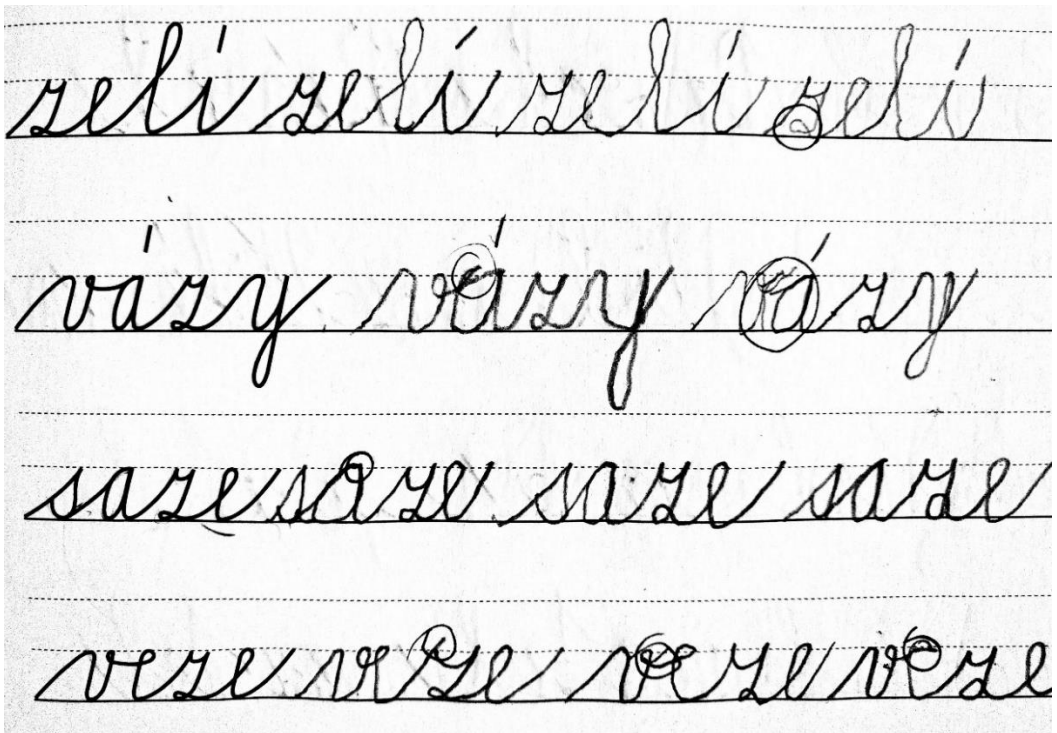 zelí zelí zelí zelí
vázy vázy vázy
saze saze saze saze
veze veze veze veze